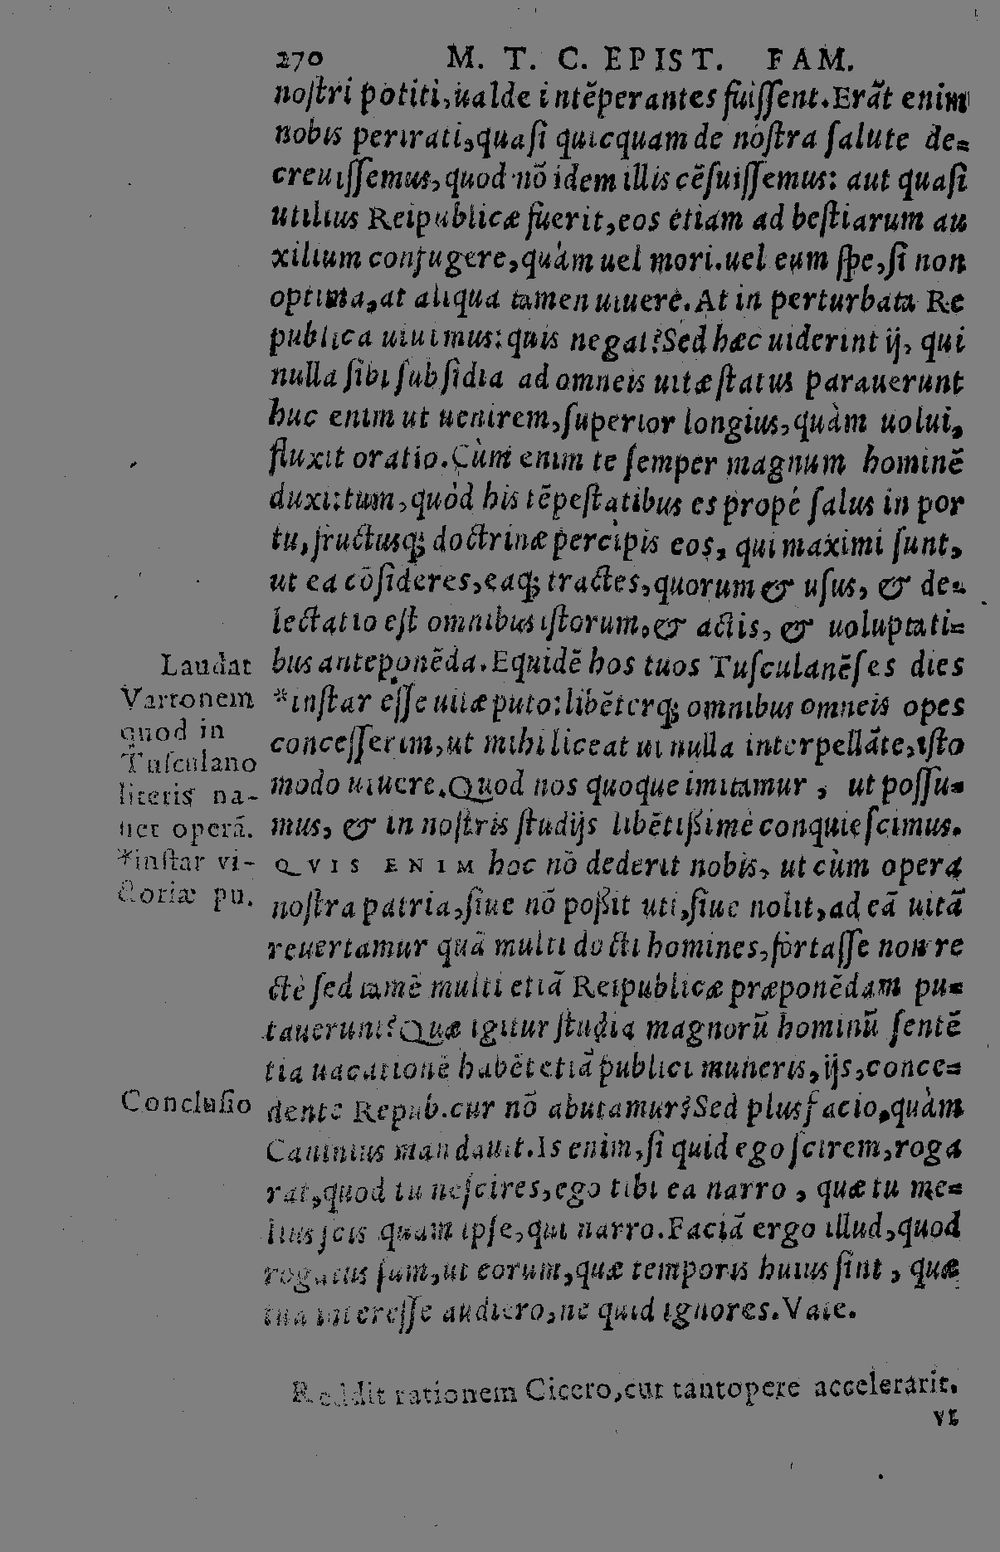 270 M. T. C. EPIST. FAM.
noſtri potiti, ualde intẽperantes fuiſſent. Erãt enim
nobis perirati, quaſi quicquam de noſtra ſalute de=
creuiſſemus, quod nõ idem illis cẽſuiſſemus: aut quaſi
utilius Reipublicæ fuerit, eos etiam ad beſtiarum au
xilium confugere, quàm uel mori. uel eum ſpe, ſi non
optima, at aliqua tamen uiuere. At in perturbata Re
publica uiuimus: quis negat? Sed hæc uiderint ij, qui
nulla ſibi ſubſidia ad omneis uitæ ſtatus parauerunt
huc enim ut uenirem, ſuperior longius, quàm uolui,
fluxit oratio. Cùm enim te ſemper magnum hominẽ
duxi: tum, quòd his tẽpeſtatibus es propè ſalus in por
tu, fructusq; doctrinæ percipis eos, qui maximi ſunt,
ut ea cõſideres, eaq; tractes, quorum & uſus, & de=
lectatio eſt omnibus iſtorum, & actis, & uoluptati=
bus anteponẽda. Equidẽ hos tuos Tuſculanẽſes dies
*inſtar eſſe uitæ puto: libẽterq; omnibus omneis opes
conceſſerim, ut mihi liceat ui nulla interpellãte, iſto
modo uiuere. Quod nos quoque imitamur, ut poſſu=
mus, & in noſtris ſtudijs libẽtißimè conquieſcimus.
QVIS ENIM hoc nõ dederit nobis, ut cùm opera
noſtra patria, ſiue nõ poßit uti, ſiue nolit, ad eã uitã
reuertamur quã multi docti homines, fortaſſe non re
ctè ſed tamẽ multi etiã Reipublicæ præponẽdam pu=
tauerunt? Quæ igitur ſtudia magnorũ hominũ ſentẽ
tia uacationẽ habẽt etiã publici muneris, ijs, conce=
dente Repub. cur nõ abutamur? Sed plus facio, quàm
Caninius mandauit. Is enim, ſi quid ego ſcirem, roga
rat, quod tu neſcires, ego tibi ea narro, quæ tu me=
lius ſcis quam ipſe, qui narro. Faciã ergo illud, quod
rogatus ſum, ut eorum, quæ temporis huius ſint, quæ
tua intereſſe audiero, ne quid ignores. Vale.
Laudat
Varronem
quod in
Tuſculano
literis na-
uet operã.
*inſtar vi-
ctoriæ pu.
Concluſio
Reddit rationem Cicero, cur tantopere accelerarit,
VI